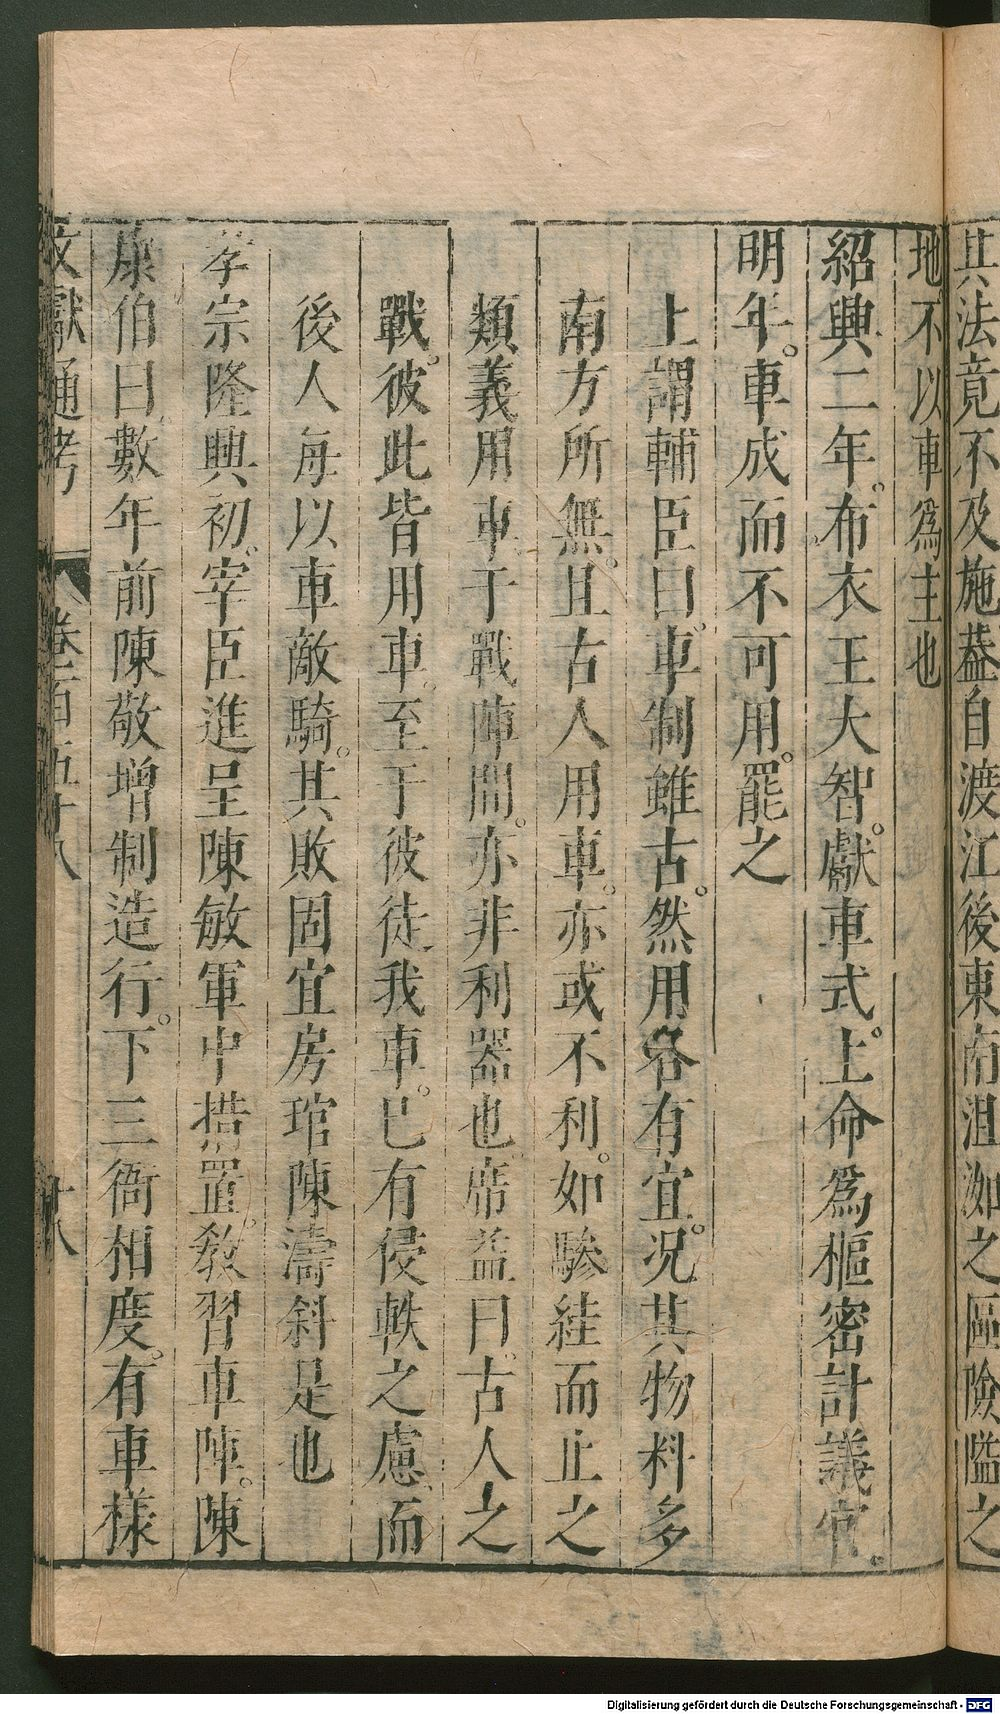 其法竟不及施葢自渡江後東南沮洳之區險隘之
地不以車爲主也
紹興二年。布衣王大智。獻車式。上命爲樞密計議官。
明年。車成而不可用。罷之
上謂輔臣曰。車制雖古。然用各有宜。况其物料多
南方所無。且古人用車。亦或不利。如驂絓而止之
類義用車于戰陣間。亦非利器也。席益曰。古人之
戰。彼此皆用車。至于彼徒我車。巳有侵軼之慮。而
後人每以車敵騎。其敗固宜房琯陳濤斜是也
孝宗隆興初。宰臣進呈陳敏軍中措置。敎習車陣。陳
康伯曰。數年前陳敬增制造行。下三衙相度。有車樣
文獻通考 卷一百五十八 十八
Digitalisierung gefördert durch die Deutsche Forschungsgemeinschaft - DFG